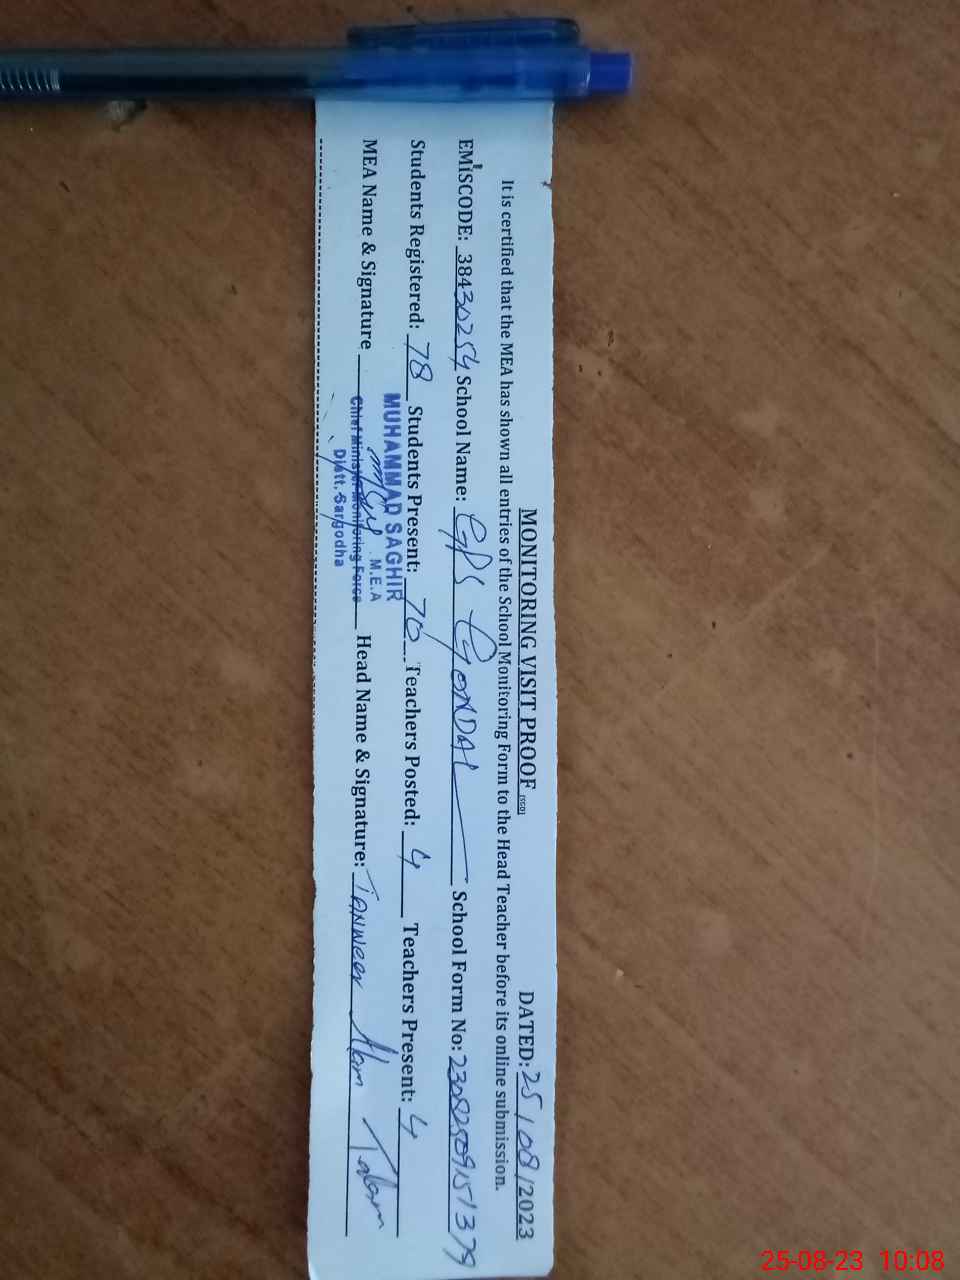 MONITORING VISIT PROOF (SGD) DATED: 25/08/2023
It is certified that the MEA has shown all entries of the School Monitoring Form to the Head Teacher before its online submission.
EMISCODE: 38430254 School Name: GPS GONDAL School Form No:
Students Registered: 78 Students Present: 70 Teachers Posted: 4 Teachers Present: 4
MEA Name & Signature Head Name & Signature: Tanweer Alam
MUHAMMAD SAGHIR
M.E.A
Chief Minister Monitoring Force
Distt. Sargodha
25-08-23 10:08